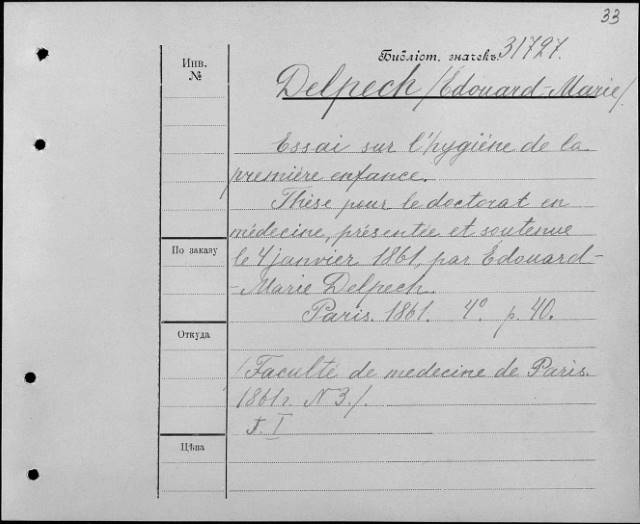 33
Инв.
№
Библіот. значекъ 31727.
Delpech /Édouard-Marie/.
Essai sur l'hygiéne de la
premiére enfance.
Thèse pour le doctorat en
médecine, présentée et soutenue
le 4 janvier 1861, par Édouard-
-Marie Delpech.
Paris. 1861. 4º. p. 40.
По заказу
Откуда
/Faculté de medecine de Paris.
1861 г. N 3./.
T. I
Цѣна